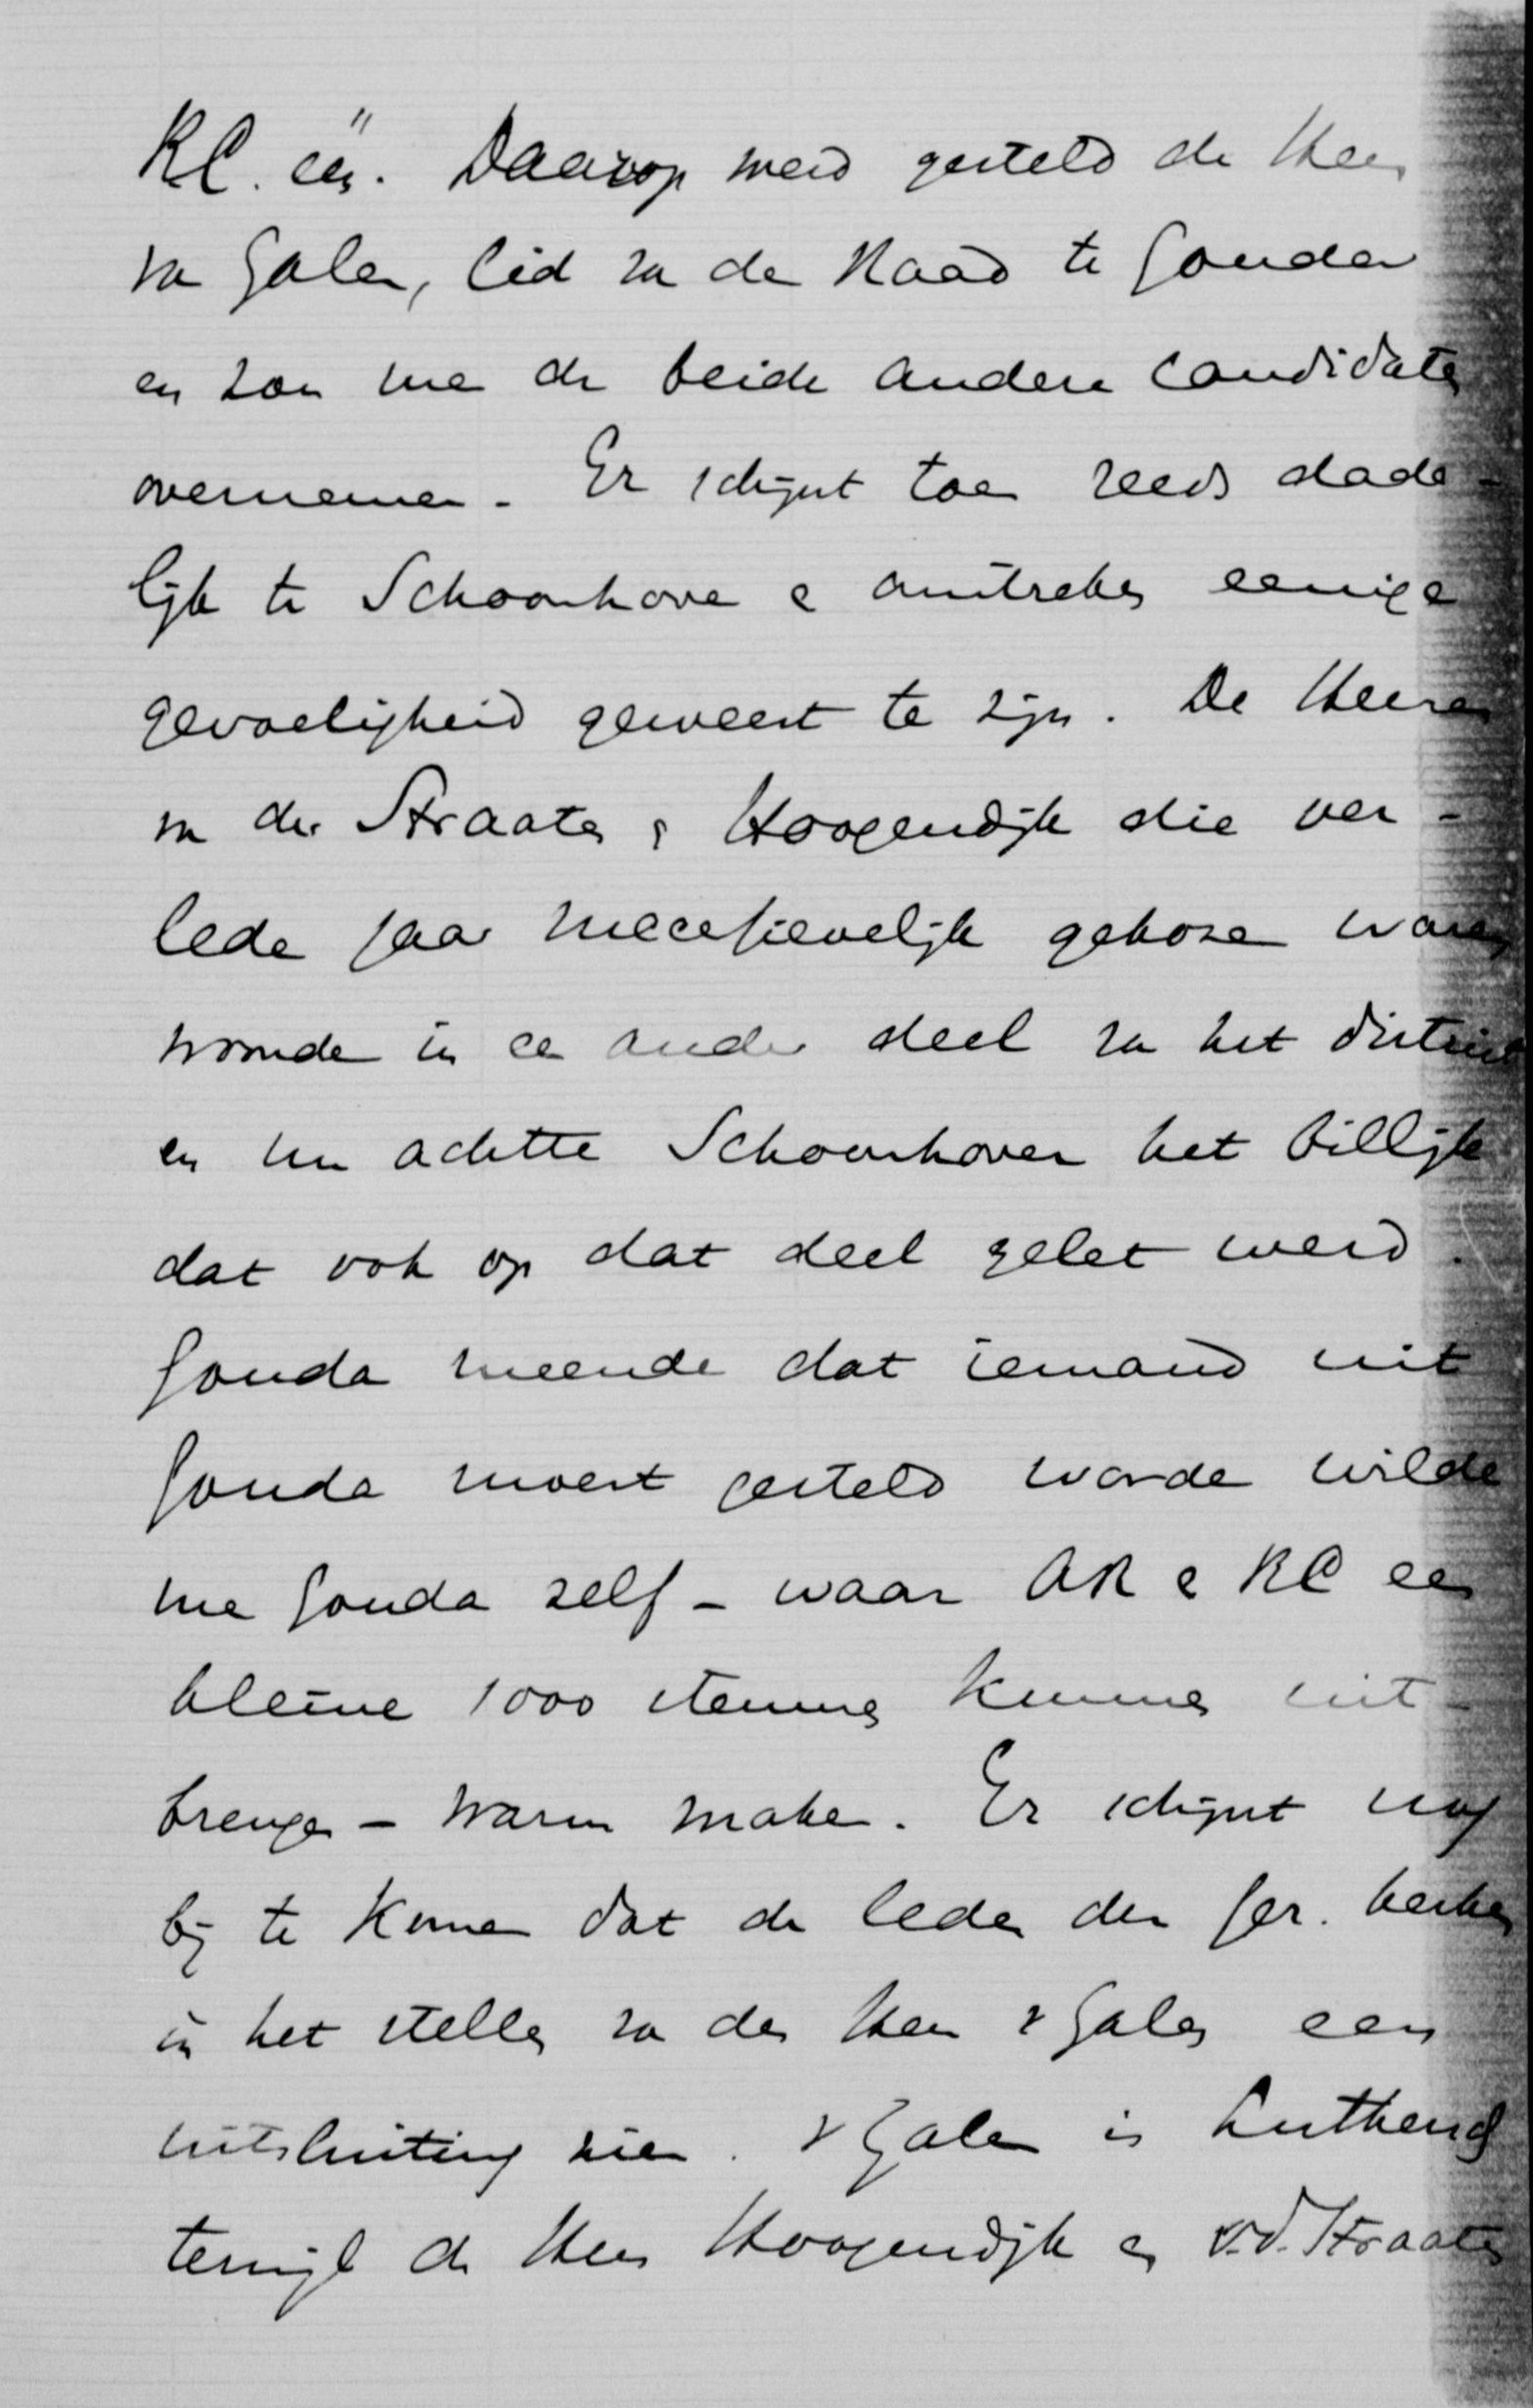 RC. één. Daarop werd gesteld de Heer
van Galen, lid van de Raad te Gouda
en zou men de beide andere candidaten
overnemen. Er schijnt toen reeds dade-
lijk te Schoonhoven en omstreken eenige
gevoeligheid geweest te zijn. De Heeren
van der Straaten en Hoogendijk die ver-
leden jaar successievelijk gekozen waren
woonden in een ander deel van het district
en nu achtte Schoonhoven het billijk
dat ook op dat deel gelet werd.
Gouda meende dat iemand uit
Gouda moest gesteld worden wilde
men Gouda zelf - waar AR en RC een
kleine 1000 stemmen kunnen uit-
brengen - warm maken. Er schijnt nog
bij te komen dat de leden der Ger. kerken
in het stellen van den Heer v Galen een
uitsluiting zien. v Galen is Luthersch
terwijl de Heeren Hoogendijk en v.d. Straaten